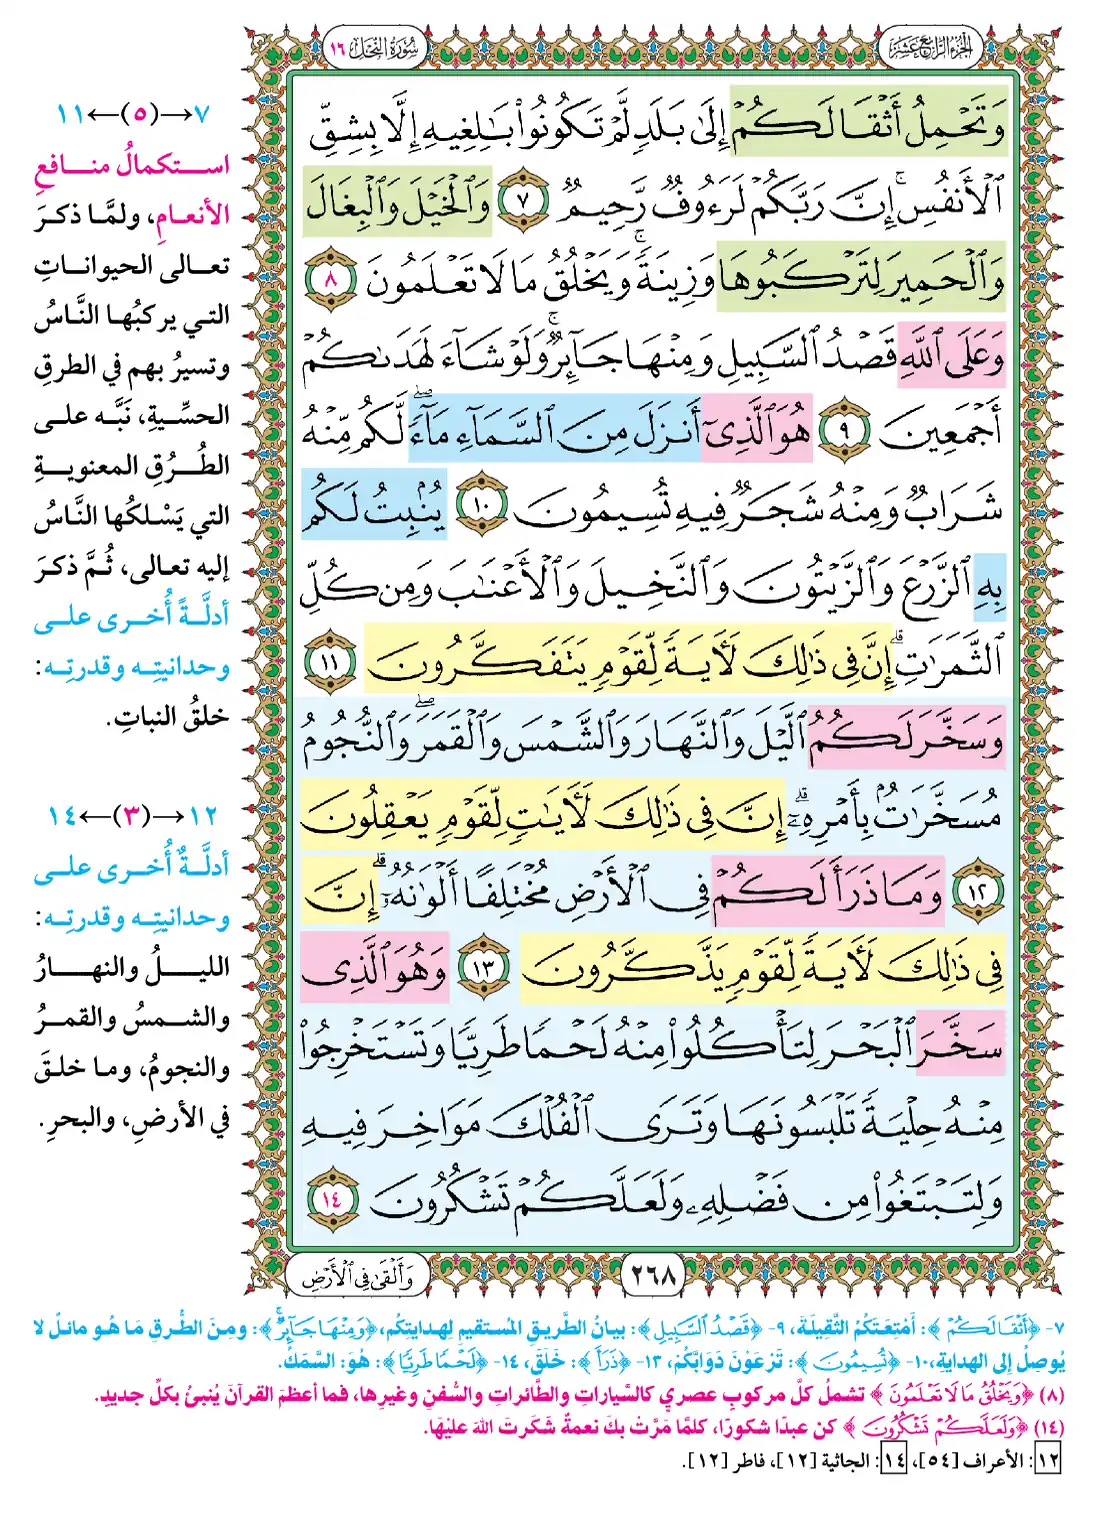 الجزء الرابع عشر
سورة النحل ١٦
وَتَحْمِلُ أَثْقَالَكُمْ إِلَىٰ بَلَدٍ لَّمْ تَكُونُوا۟ بَٰلِغِيهِ إِلَّا بِشِقِّ
ٱلْأَنفُسِ ۚ إِنَّ رَبَّكُمْ لَرَءُوفٌ رَّحِيمٌ ٧ وَٱلْخَيْلَ وَٱلْبِغَالَ
وَٱلْحَمِيرَ لِتَرْكَبُوهَا وَزِينَةً ۚ وَيَخْلُقُ مَا لَا تَعْلَمُونَ ٨
وَعَلَى ٱللَّهِ قَصْدُ ٱلسَّبِيلِ وَمِنْهَا جَآئِرٌ ۚ وَلَوْ شَآءَ لَهَدَىٰكُمْ
أَجْمَعِينَ ٩ هُوَ ٱلَّذِىٓ أَنزَلَ مِنَ ٱلسَّمَآءِ مَآءً ۖ لَّكُم مِّنْهُ
شَرَابٌ وَمِنْهُ شَجَرٌ فِيهِ تُسِيمُونَ ١٠ يُنۢبِتُ لَكُم
بِهِ ٱلزَّرْعَ وَٱلزَّيْتُونَ وَٱلنَّخِيلَ وَٱلْأَعْنَٰبَ وَمِن كُلِّ
ٱلثَّمَرَٰتِ ۗ إِنَّ فِى ذَٰلِكَ لَءَايَةً لِّقَوْمٍ يَتَفَكَّرُونَ ١١
وَسَخَّرَ لَكُمُ ٱلَّيْلَ وَٱلنَّهَارَ وَٱلشَّمْسَ وَٱلْقَمَرَ ۖ وَٱلنُّجُومُ
مُسَخَّرَٰتٌۢ بِأَمْرِهِۦٓ ۗ إِنَّ فِى ذَٰلِكَ لَءَايَٰتٍ لِّقَوْمٍ يَعْقِلُونَ
١٢ وَمَا ذَرَأَ لَكُمْ فِى ٱلْأَرْضِ مُخْتَلِفًا أَلْوَٰنُهُۥٓ ۗ إِنَّ
فِى ذَٰلِكَ لَءَايَةً لِّقَوْمٍ يَذَّكَّرُونَ ١٣ وَهُوَ ٱلَّذِى
سَخَّرَ ٱلْبَحْرَ لِتَأْكُلُوا۟ مِنْهُ لَحْمًا طَرِيًّا وَتَسْتَخْرِجُوا۟
مِنْهُ حِلْيَةً تَلْبَسُونَهَا وَتَرَى ٱلْفُلْكَ مَوَاخِرَ فِيهِ
وَلِتَبْتَغُوا۟ مِن فَضْلِهِۦ وَلَعَلَّكُمْ تَشْكُرُونَ ١٤
٢٦٨
وَأَلْقَىٰ فِى ٱلْأَرْضِ
٧→(٥)←١١
استكمالُ منافعِ
الأنعامِ، ولمَّا ذكرَ
تعالى الحيواناتِ
التي يركبُها النَّاسُ
وتسيرُ بهم في الطرقِ
الحسِّيةِ، نَبَّه على
الطُّرُقِ المعنويةِ
التي يَسْلكُها النَّاسُ
إليه تعالى، ثُمَّ ذكرَ
أدلَّةً أُخرى على
وحدانيتِه وقدرتِه:
خلقُ النباتِ.
١٢→(٣)←١٤
أدلَّةٌ أُخرى على
وحدانيتِه وقدرتِه:
الليلُ والنهارُ
والشمسُ والقمرُ
والنجومُ، وما خلقَ
في الأرضِ، والبحرِ.
٧- ﴿أَثْقَالَكُمْ﴾: أَمْتِعَتَكُمُ الثَّقِيلَةَ، ٩- ﴿قَصْدُ ٱلسَّبِيلِ﴾: بيانُ الطَّرِيقِ المُسْتَقِيمِ لِهِدايَتِكُم، ﴿وَمِنْهَا جَآئِرٌ ۚ﴾: ومِنَ الطُّرقِ مَا هُو مائلٌ لا
يُوصلُ إلى الهِدايةِ، ١٠- ﴿تُسِيمُونَ﴾: تَرْعَوْنَ دَوَابَّكُمْ، ١٣- ﴿ذَرَأَ﴾: خَلَقَ، ١٤- ﴿لَحْمًا طَرِيًّا﴾: هُوَ: السَّمَكُ.
(٨) ﴿وَيَخْلُقُ مَا لَا تَعْلَمُونَ﴾ تشملُ كلَّ مركوبٍ عصري كالسَّياراتِ والطَّائراتِ والسُّفنِ وغيرِها، فما أعظمَ القرآنَ يُنبئُ بكلِّ جديدٍ.
(١٤) ﴿وَلَعَلَّكُمْ تَشْكُرُونَ﴾ كن عبدًا شكورًا، كلمَّا مَرَّتْ بكَ نعمةٌ شَكَرتَ اللهَ عليْهَا.
١٢: الأعراف [٥٤]، ١٤: الجاثية [١٢]، فاطر [١٢].